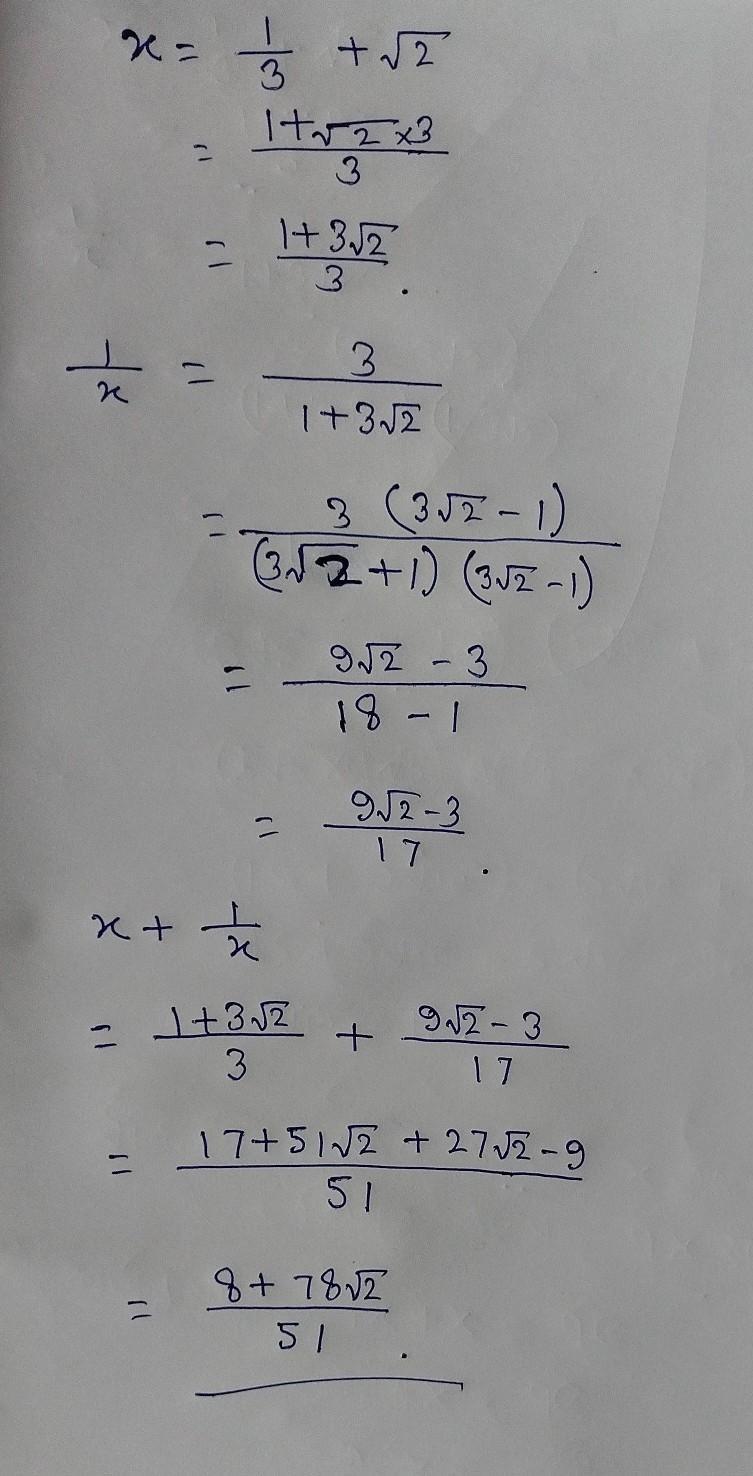 x = 1/3 + √2
= (1+√2×3)/3
= (1+3√2)/3.
1/x = 3/(1+3√2)
= 3(3√2-1)/((3√2+1)(3√2-1))
= (9√2-3)/(18-1)
= (9√2-3)/17.
x + 1/x
= (1+3√2)/3 + (9√2-3)/17
= (17+51√2+27√2-9)/51
= (8+78√2)/51.